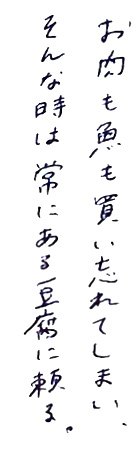 お肉も魚も買い忘れてしまい、
そんな時は常にある豆腐に頼る。